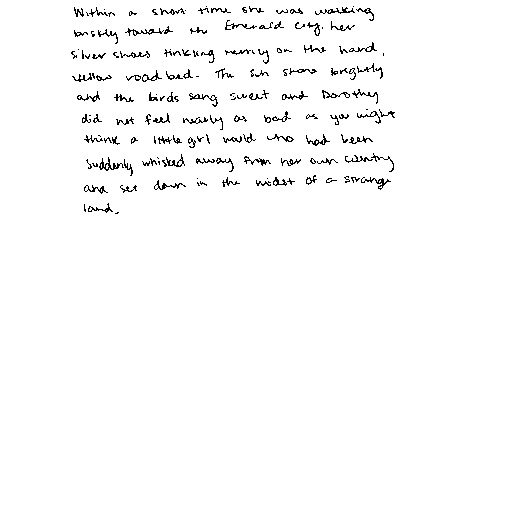 Within a short time she was walking
briskly toward the Emerald City, her
silver shoes tinkling merrily on the hard,
yellow roadbed. The sun shone brightly
and the birds sang sweet and Dorothy
did not feel nearly as bad as you might
think a little girl would who had been
suddenly whisked away from her own country
and set down in the midst of a strange
land.